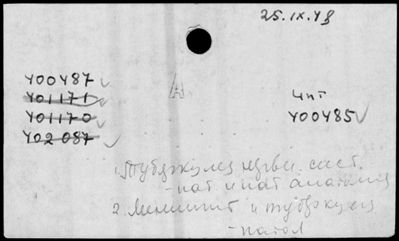 25.IX.48
400487
401171
401170
402087
Чит
400485
1. Туберкулез нерв. сист.
- пат и пат анатомия
2. Менингит и туберкулез
- патол